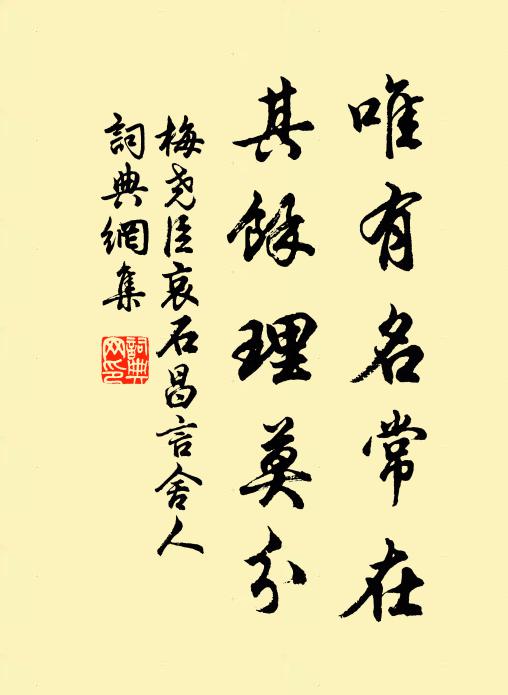 唯有名常在
其餘理莫分
梅尧臣哀石昌言舍人
詞典網集
詞典网印